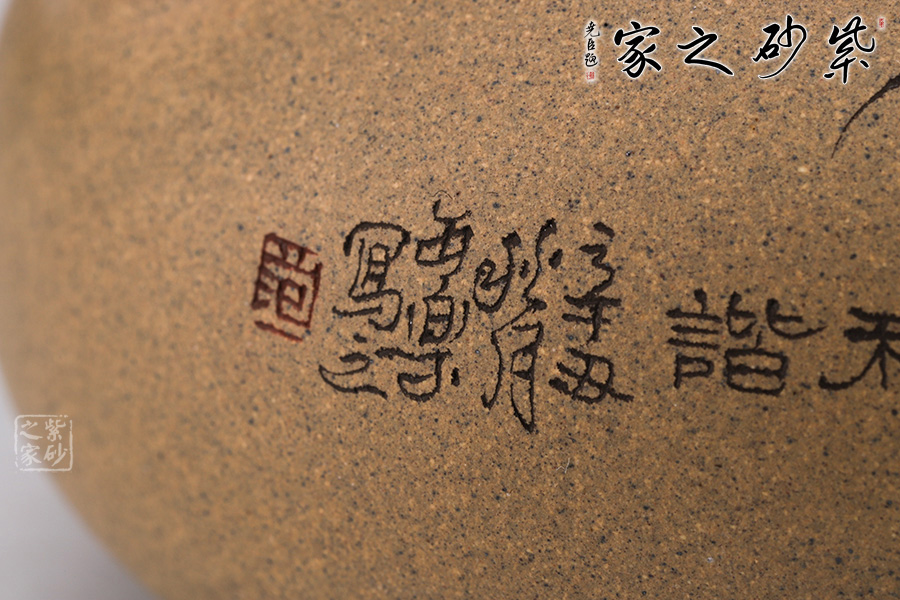 紫砂之家
尧臣題
諧
辛丑
秋月
寫之
紫砂
之家